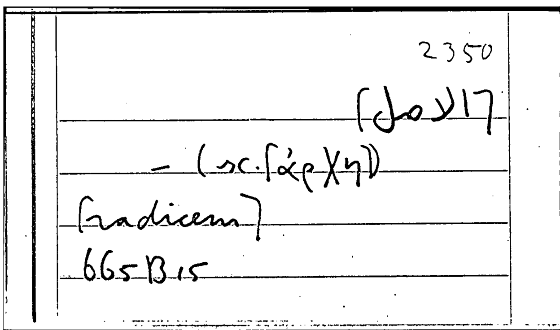 2350
– (sc. [ἀρχὴ])
[radicem]
665B15